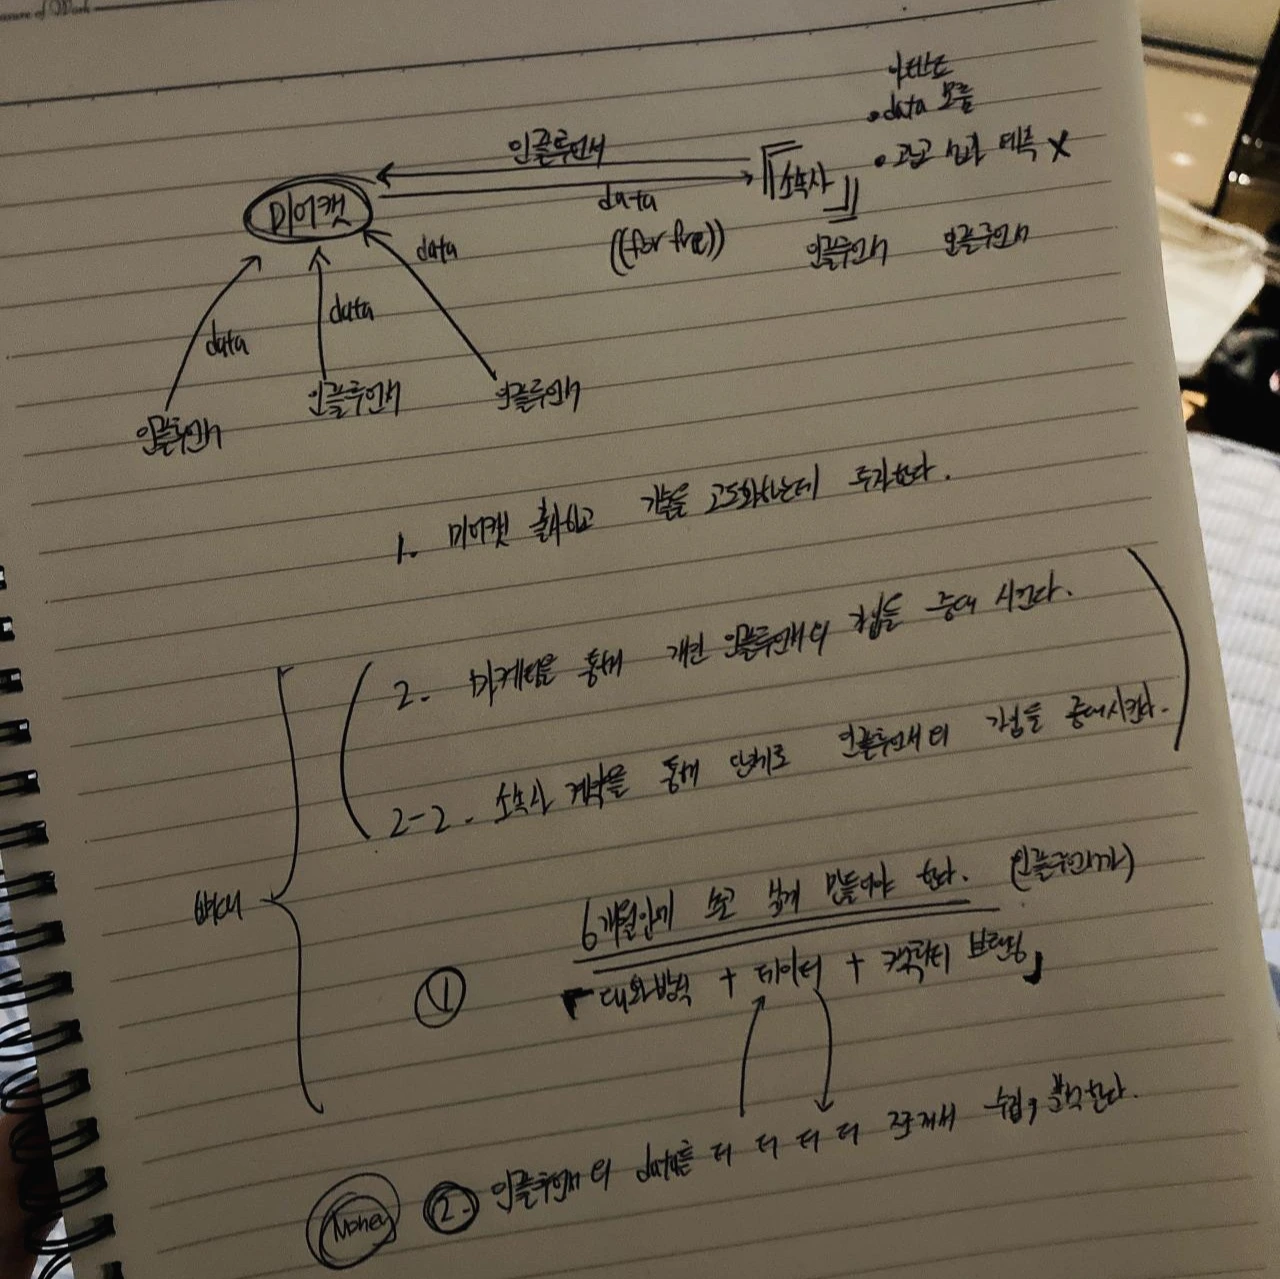 data 모름
인플루언서
광고 성과 예측 X
소속사
미어캣
data
((for free))
인플루언서 인플루언서
data
data
data
인플루언서 인플루언서 인플루언서
1. 미어캣 출시하고 기술을 고도화하는데 투자한다.
2. 마케팅을 통해 개인 인플루언서의 가입을 증대 시킨다.
2-2. 소속사 계약을 통해 단체로 인플루언서의 가입을 증대시킨다.
6개월안에 쓰고 싶게 만들어야 한다. (인플루언서가)
① 「대화방식 + 데이터 + 캐릭터 브랜딩」
Money ②- 인플루언서의 data를 더 더 더 더 쪼개서 수집, 분석한다.